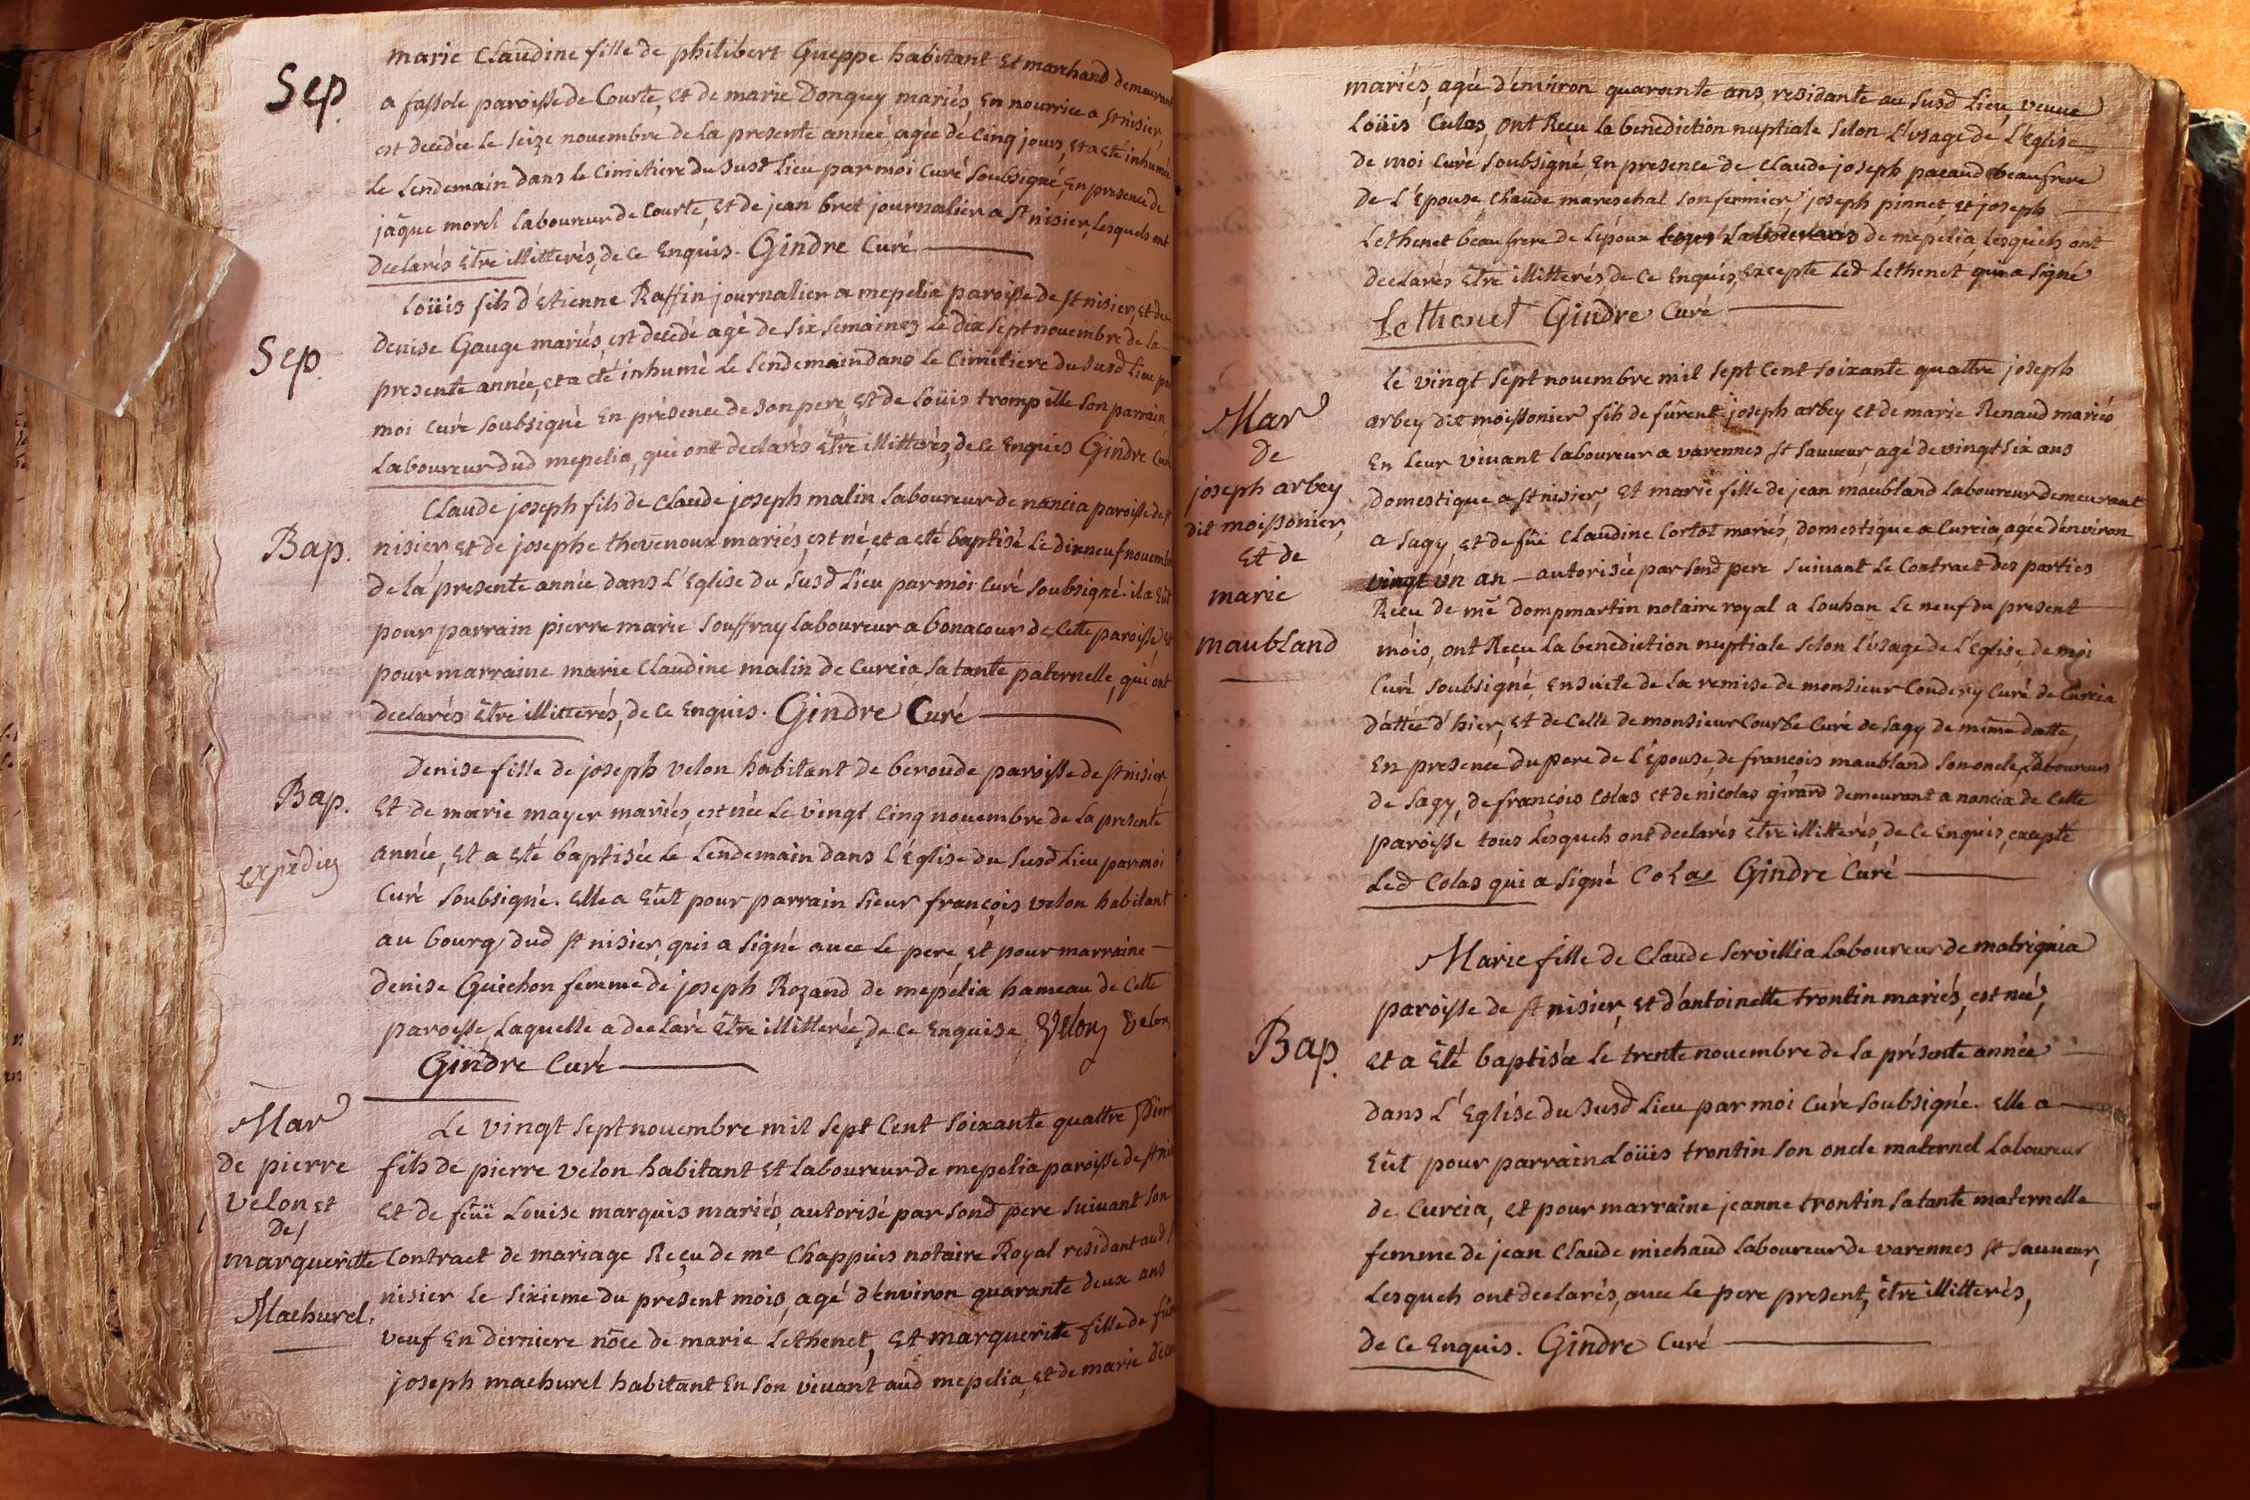 Sep.
marie Claudine fille de philibert Gueppe habitant et marchand demeurant
a fassole paroisse de Courte, et de marie Donguy mariés, en nourrice a st nisier,
est decédée le seize novembre de la presente année, agée de cinq jours, et a eté inhumée
le lendemain dans le Cimitiere du susd lieu par moi Curé soubsigné, en presence de
jâque morel laboureur de Courte, et de jean bret journalier a st nisier, lesquels ont
declarés être illitterés, de ce enquis. Gindre Curé
Sep.
Loüis fils d'Etienne Raffin journalier a mepelia paroisse de st nisier, et de
Denise Gauge mariés, est decédé agé de six semaines le dix sept novembre de la
presente année, et a eté inhumé le lendemain dans le Cimitiere du susd lieu par
moi Curé soubsigné en présence de son pere, et de Loüis trompille son parrain
Laboureur dud mepelia, qui ont declarés être illitterés, de ce enquis Gindre Curé
Bap.
Claude joseph fils de Claude joseph malin Laboureur de nancia paroisse de st
nisier et de josephe thevenoux mariés, est né, et a eté baptisé le dixneuf novembre
de la presente année dans l'Eglise du susd lieu par moi Curé soubsigné. il a eût
pour parrain pierre marie souffray laboureur a bonacour de cette paroisse, et
pour marraine marie Claudine malin de Curcia sa tante paternelle, qui ont
declarés être illitterés, de ce enquis. Gindre Curé
Bap.
expédié
Denise fille de joseph velon habitant de beroude paroisse de st nisier,
et de marie mayer mariés, est née le vingt cinq novembre de la presente
année, et a eté baptisée le lendemain dans l'Eglise du susd lieu par moi
Curé soubsigné. Elle a eût pour parrain sieur françois velon habitant
au bourg dud st nisier, qui a signé avec le pere, et pour marraine
denise Guichon femme de joseph Rozand de mepelia hameau de cette
paroisse, laquelle a declaré être illitterée, de ce enquise. Velon Velon
Gindre Curé
Mar
de pierre
velon et
de
margueritte
Machurel.
Le vingt sept novembre mil sept cent soixante quattre Pierre
fils de pierre velon habitant et laboureur de mepelia paroisse de st nisier
et de feüe Louise marquis mariés, autorisé par sond pere suivant son
Contract de mariage Reçu de me Chappuis notaire Royal residant aud st
nisier le sixieme du present mois, agé d'environ quarante deux ans
veuf en derniere nôce de marie Lethenet, et margueritte fille de fût
joseph machurel habitant en son vivant aud mepelia, et de marie
mariés, agée d'environ quarante ans, residante au susd lieu, veuve
Loüis Culas, ont Reçu la benediction nuptiale selon l'usage de l'Eglise
de moi Curé soubsigné, en presence de Claude joseph pacaud beaufrere
de l'Epouse, Claude mareschal son fermier, joseph pinnet, et joseph
Lethenet beaufrere de l'époux tous laboureurs de mepelia, lesquels ont
declarés être illitterés, de ce enquis, excepte led Lethenet qui a signé
Lethenet Gindre Curé
Mar
de
joseph arbey
dit moissonier,
et de
marie
maubland
Le vingt sept novembre mil sept cent soixante quattre joseph
arbey dit moissonier fils de fûrent joseph arbey et de marie Renaud mariés
en leur vivant laboureur a varennes st sauveur, agé de vingt six ans
domestique a st nisier, et marie fille de jean maubland laboureur demeurant
a Sagy, et de fûe Claudine Cortot mariés, domestique a Curcia, agée d'environ
vingt ún an – autorisée par sond pere suivant le Contract des parties
Reçu de me dompmartin notaire royal a Louhan le neuf du present
móis, ont Reçu la benediction nuptiale selon l'usage de l'Eglise, de moi
Curé soubsigné, ensuite de la remise de monsieur Coudery Curé de Curcia
dattée d'hier, et de celle de monsieur Courbe Curé de Sagy de même datte,
en presence du pere de l'épouse, de françois maubland son oncle, laboureurs
de Sagy, de françois Colas et de nicolas girard demeurant a nancia de cette
paroisse tous lesquels ont declarés être illitterés, de ce enquis, excepte
Led Colas qui a signé Colas Gindre Curé
Bap.
Marie fille de Claude Servillia Laboureur de matrignia
paroisse de st nisier, et d'antoinette trontin mariés, est née,
et a êté baptisée le trente novembre de la présente année
dans l'Eglise du susd lieu par moi Curé soubsigné. Elle a
eût pour parrain Loüis trontin son oncle maternel Laboureur
de Curcia, et pour marraine jeanne trontin sa tante maternelle
femme de jean Claude michaud laboureur de varennes st sauveur,
Lesquels ont declarés, avec le pere present, être illitterés,
de ce enquis. Gindre Curé